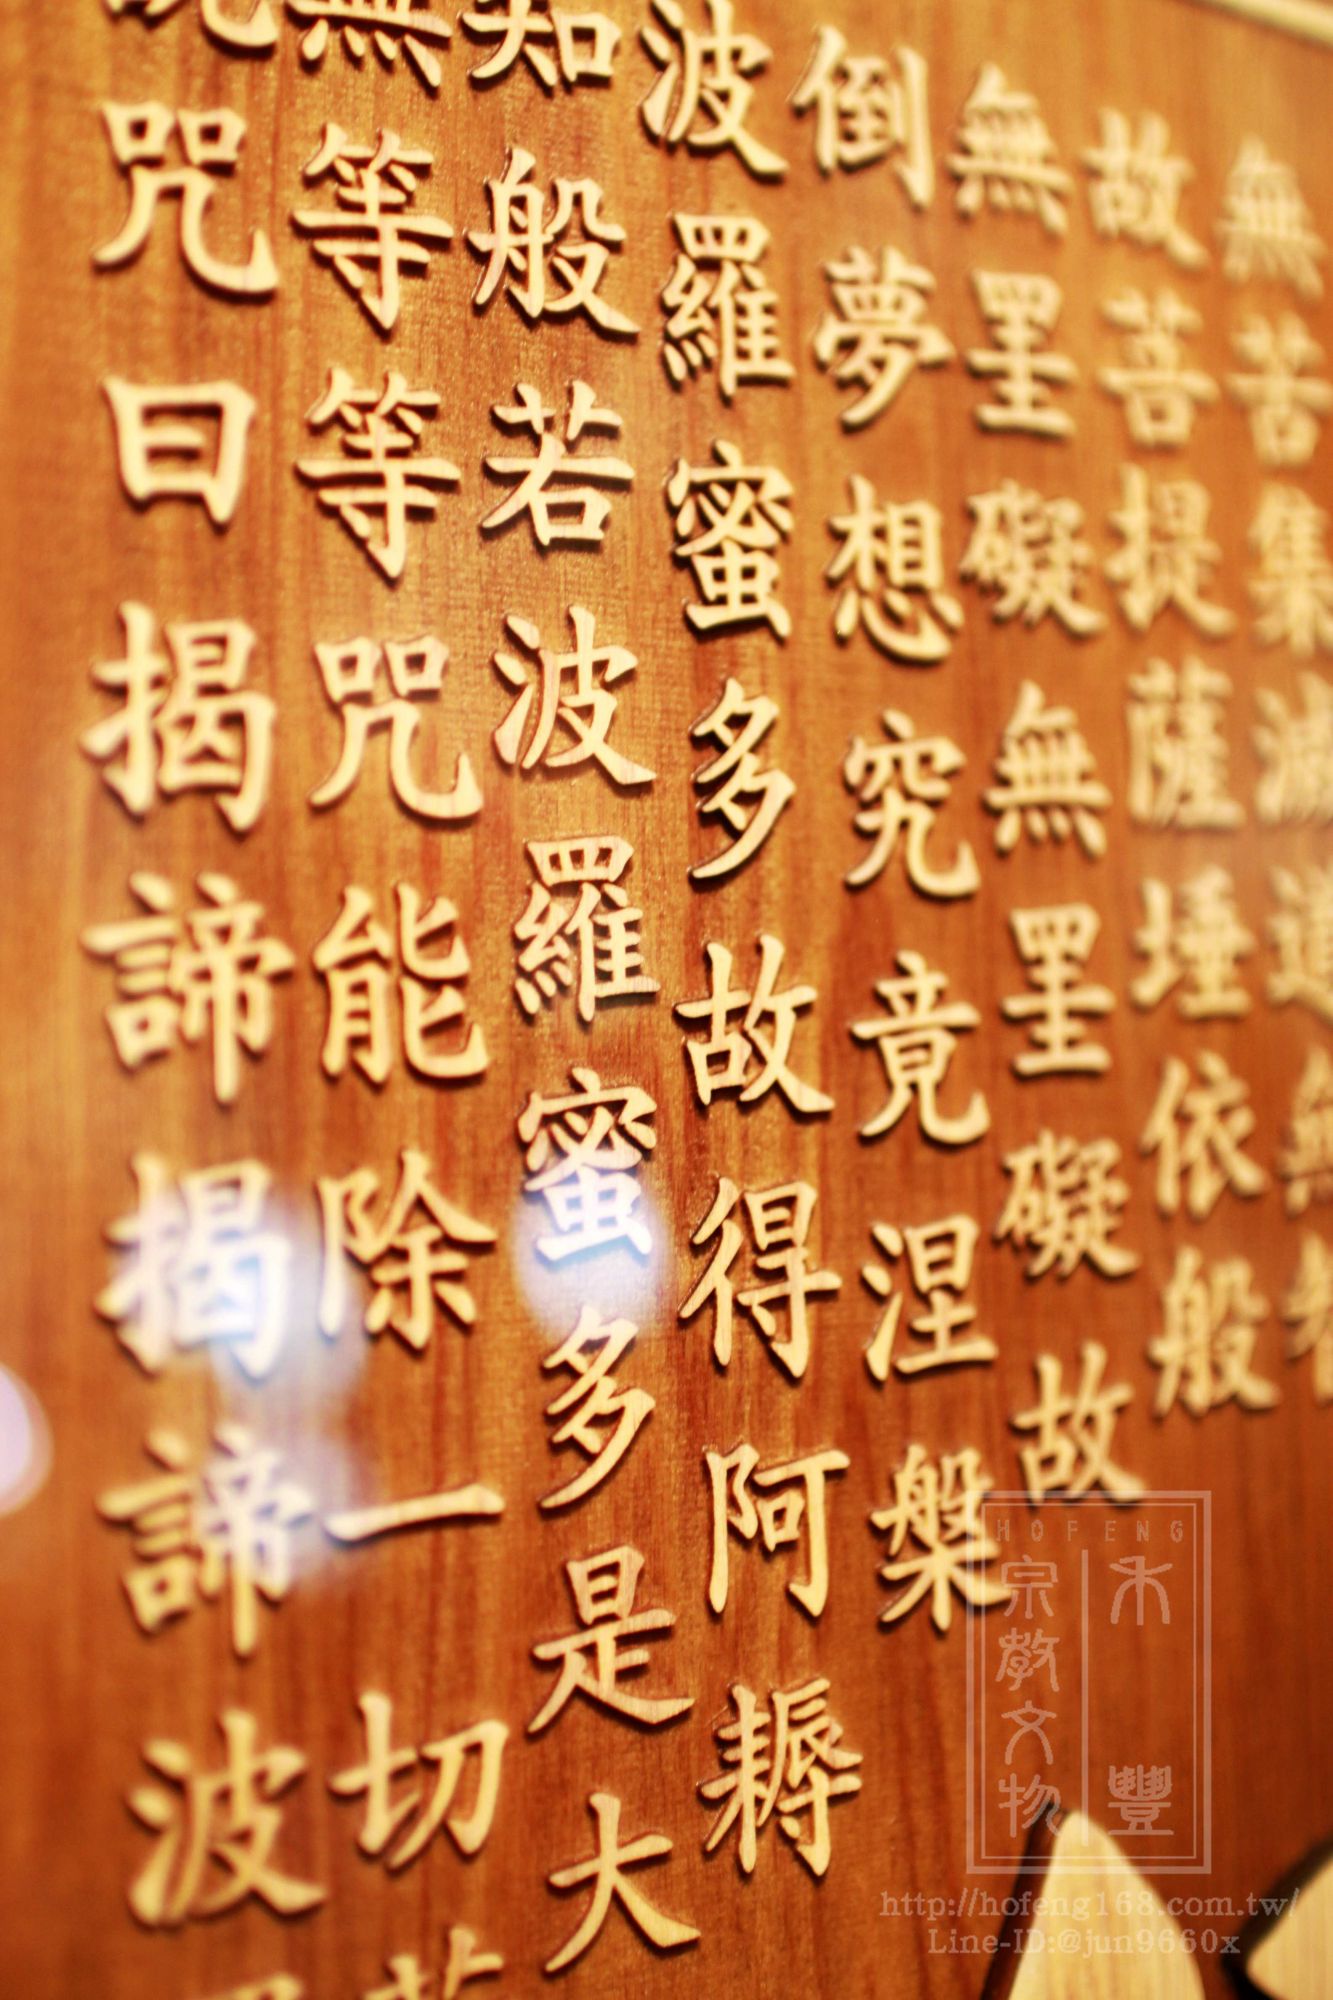 無苦集滅道無
故菩提薩埵依般
無罣礙無罣礙故
倒夢想究竟涅槃
波羅蜜多故得阿耨
知般若波羅蜜多是大
無等等咒能除一切
說咒曰揭諦揭諦波
HOFENG
禾豐
宗教文物
http://hofeng168.com.tw/
Line-ID:@jun9660x